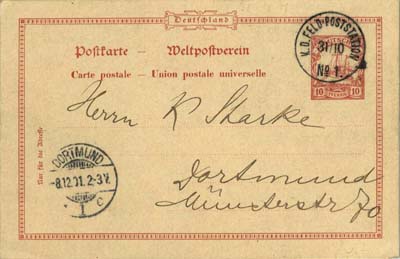 Deutschland
Postkarte – Weltpostverein
Carte postale – Union postale universelle
K.D. FELD-POSTSTATION
31/10
No 1.
10 10
PFENNIG
Nur für die Adresse
Herrn K Starke
Dortmund
Münsterstr 70
DORTMUND
-8.12.01.2-3½
1 c